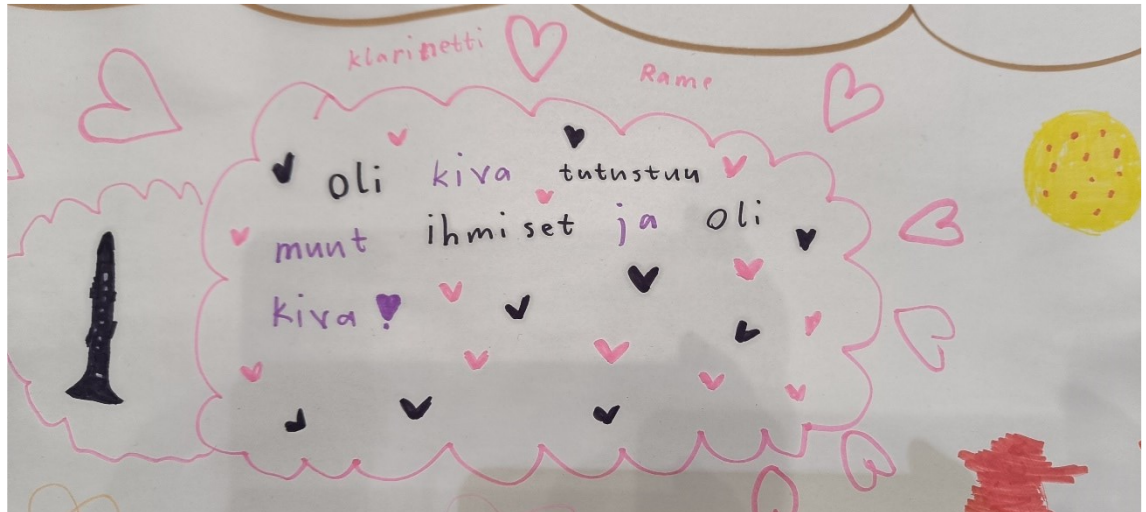 klarinetti
Rame
oli kiva tutustuu
munt ihmiset ja oli
kiva!